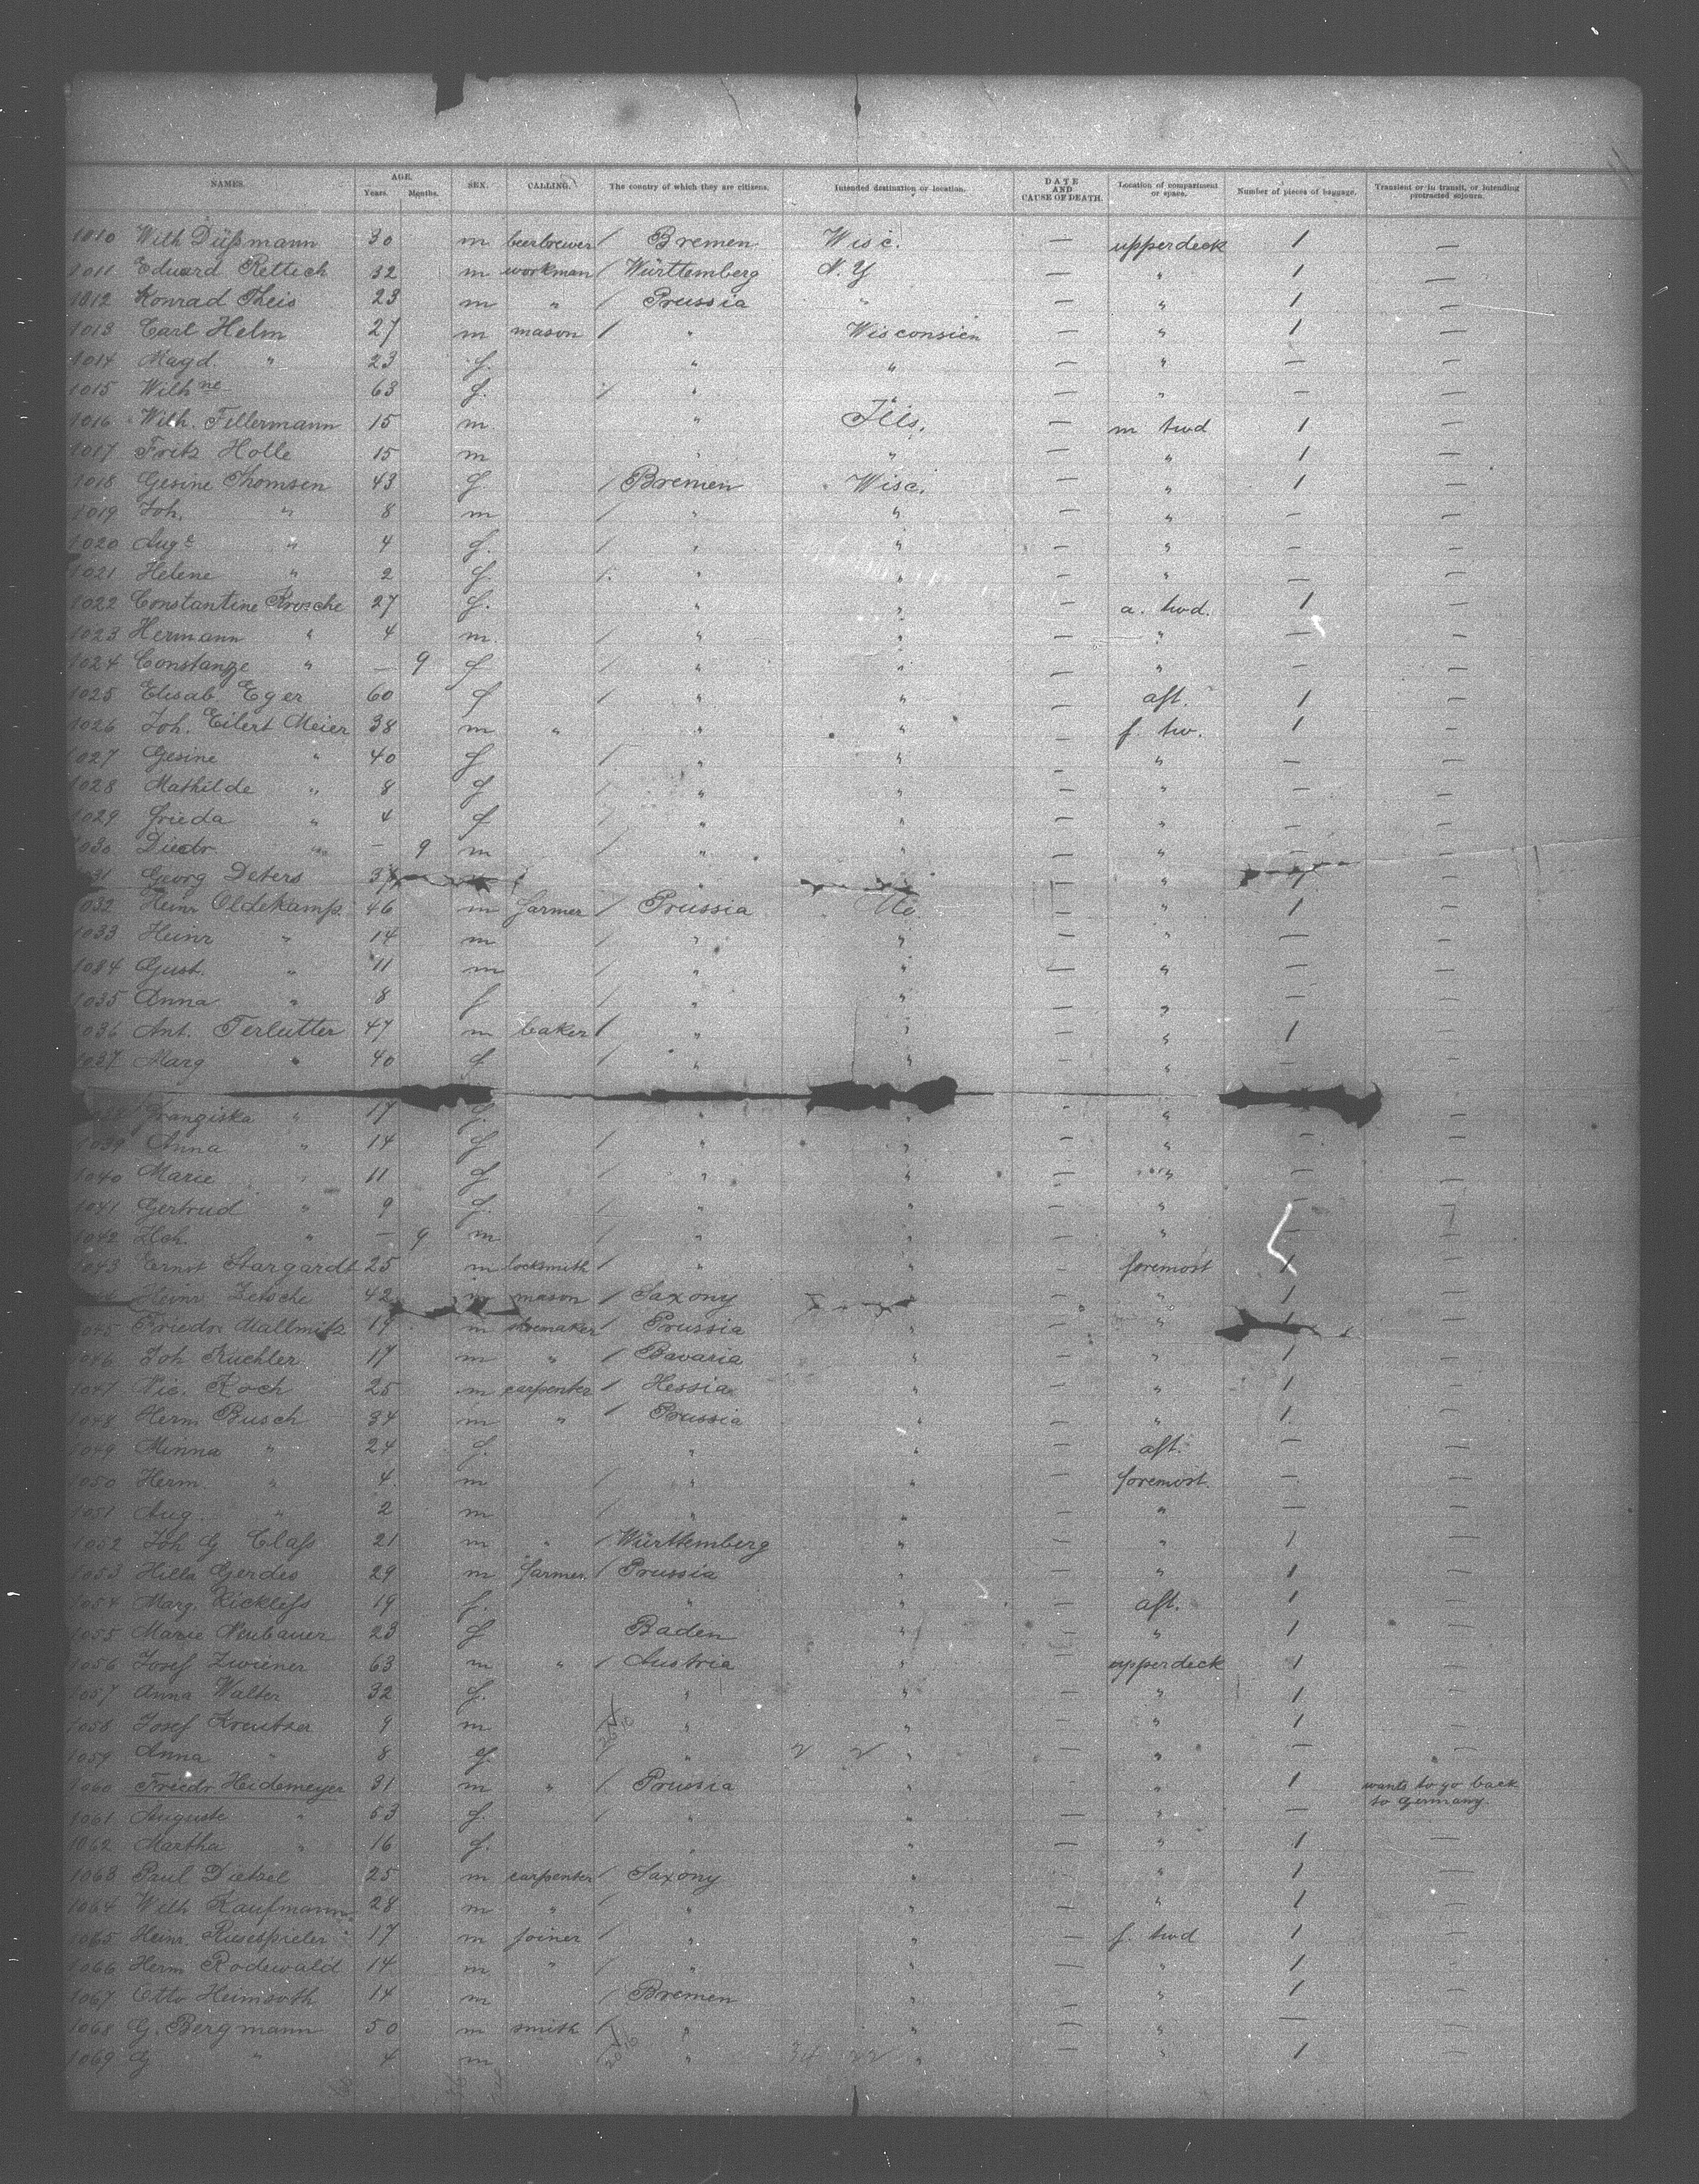 NAMES. AGE. Years. Months. SEX. CALLING. The country of which they are citizens. Intended destination or location. DATE AND CAUSE OF DEATH. Location of compartment or space. Number of pieces of baggage. Transient or in transit, or intending protracted sojourn.
1010 Wilh Düßmann 30 m beerbrewer / Bremen Wisc. — upperdeck 1 —
1011 Eduard Rettich 32 m workman / Württemberg N.Y — " 1 —
1012 Konrad Theis 23 m " / Prussia " — " 1 —
1013 Carl Helm 27 m mason / " Wisconsien — " 1 —
1014 Magd. " 23 f. " " — " — —
1015 Wilhne 63 f. / " " — " — —
1016 Wilh. Fillermann 15 m " Ills. — m twd 1 —
1017 Fritz Holle 15 m " " — " 1 —
1018 Gesine Thomsen 43 f / Bremen Wisc. — " 1 —
1019 Joh. " 8 m / " " — " — —
1020 Auge " 4 f. / " " — " — —
1021 Helene " 2 f. / " " — " — —
1022 Constantine Krosche 27 f. " " — a. twd. 1 —
1023 Hermann " 4 m. / " " — " — —
1024 Constanze " — 9 f / " " — " — —
1025 Elisab Eger 60 f / " " — aft. 1 —
1026 Joh. Eilert Meier 38 m " " " — f. tw. 1 —
1027 Gesine " 40 f / " " — " — —
1028 Mathilde " 8 f / " " — " — —
1029 Frieda " 4 f / " " — " — —
1030 Diedr " — 9 m / " " — " — —
1031 Georg Deters " " 1 —
1032 Heinr Oldekamp 46 m farmer / Prussia Mo — " 1 —
1033 Heinr " 14 m / " " — " — —
1034 Gust. " 11 m / " " — " — —
1035 Anna " 8 f / " " — " — —
1036 Ant. Terlutter 47 m baker / " " — " 1 —
1037 Marg " 40 f / " " — " — —
Franziska " 17 f. " " — " —
1039 Anna " 14 f / " " — " — —
1040 Marie " 11 f / " " — " — —
1041 Gertrud " 9 f. / " " — " — —
1042 Joh. " — 9 m / " " — " — —
1043 Ernst Stargardt 25 m locksmith / " " — foremost 1 —
Heinr Zetsche 42 m mason / Saxony — " 1 —
1045 Friedr Mallmitz 19 m shoemaker / Prussia " — " 1 —
1046 Joh Ruchler 17 m " / Bavaria " — " 1 —
1047 Nic. Koch 25 m carpenter / Hessia " — " 1 —
1048 Herm Busch 34 m " / Prussia " — " 1. —
1049 Minna " 24 f. " " — aft. — —
1050 Herm. " 4. m / " " — foremost. — —
1051 Aug. " 2 m / " " — " — —
1052 Joh G Claß 21 m " / Württemberg " — " 1 —
1053 Hilla Gerdes 29 m farmer. / Prussia " — " 1 —
1054 Marg. Rickleſs 19 f. " " — aft. 1 —
1055 Marie Neubauer 23 f Baden " — " 1 —
1056 Josef Zwiener 63 m " / Austria " — upperdeck 1 —
1057 Anna Walter 32 f. " " — " 1 —
1058 Josef Kreutzer 9 m / " " — " 1 —
1059 Anna " 8 f. / " " — " — —
1060 Friedr. Heidemeyer 31 m " / Prussia " — " 1 wants to go back to Germany.
1061 Auguste " 53 f. / " " — " —
1062 Martha " 16 f. " " — " 1 —
1063 Paul Dietzel 25 m carpenter / Saxony " — " 1 —
1064 Wilh Kaufmann 28 m " / " " — " 1 —
1065 Heinr. Riesespieler 17 m joiner / " " — f. twd 1 —
1066 Herm Rodewald 14 m " / " " — " 1 —
1067 Otto Heimsoth 14 m / Bremen " — " 1 —
1068 G. Bergmann 50 m smith / " " — " — —
1069 G " 4 m / " " — " 1 —